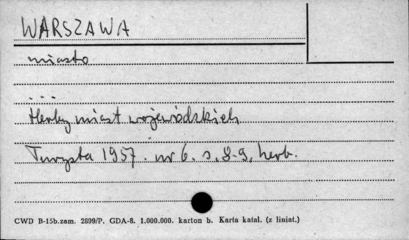 WARSZAWA
miasto
...
Herby miast wojewódzkich
Turysta 1957. nr 6. s. 8-9, herb.
CWD B-15b.zam. 2899/P. GDA-8. 1.000.000. karton b. Karta katal. (z liniat.)